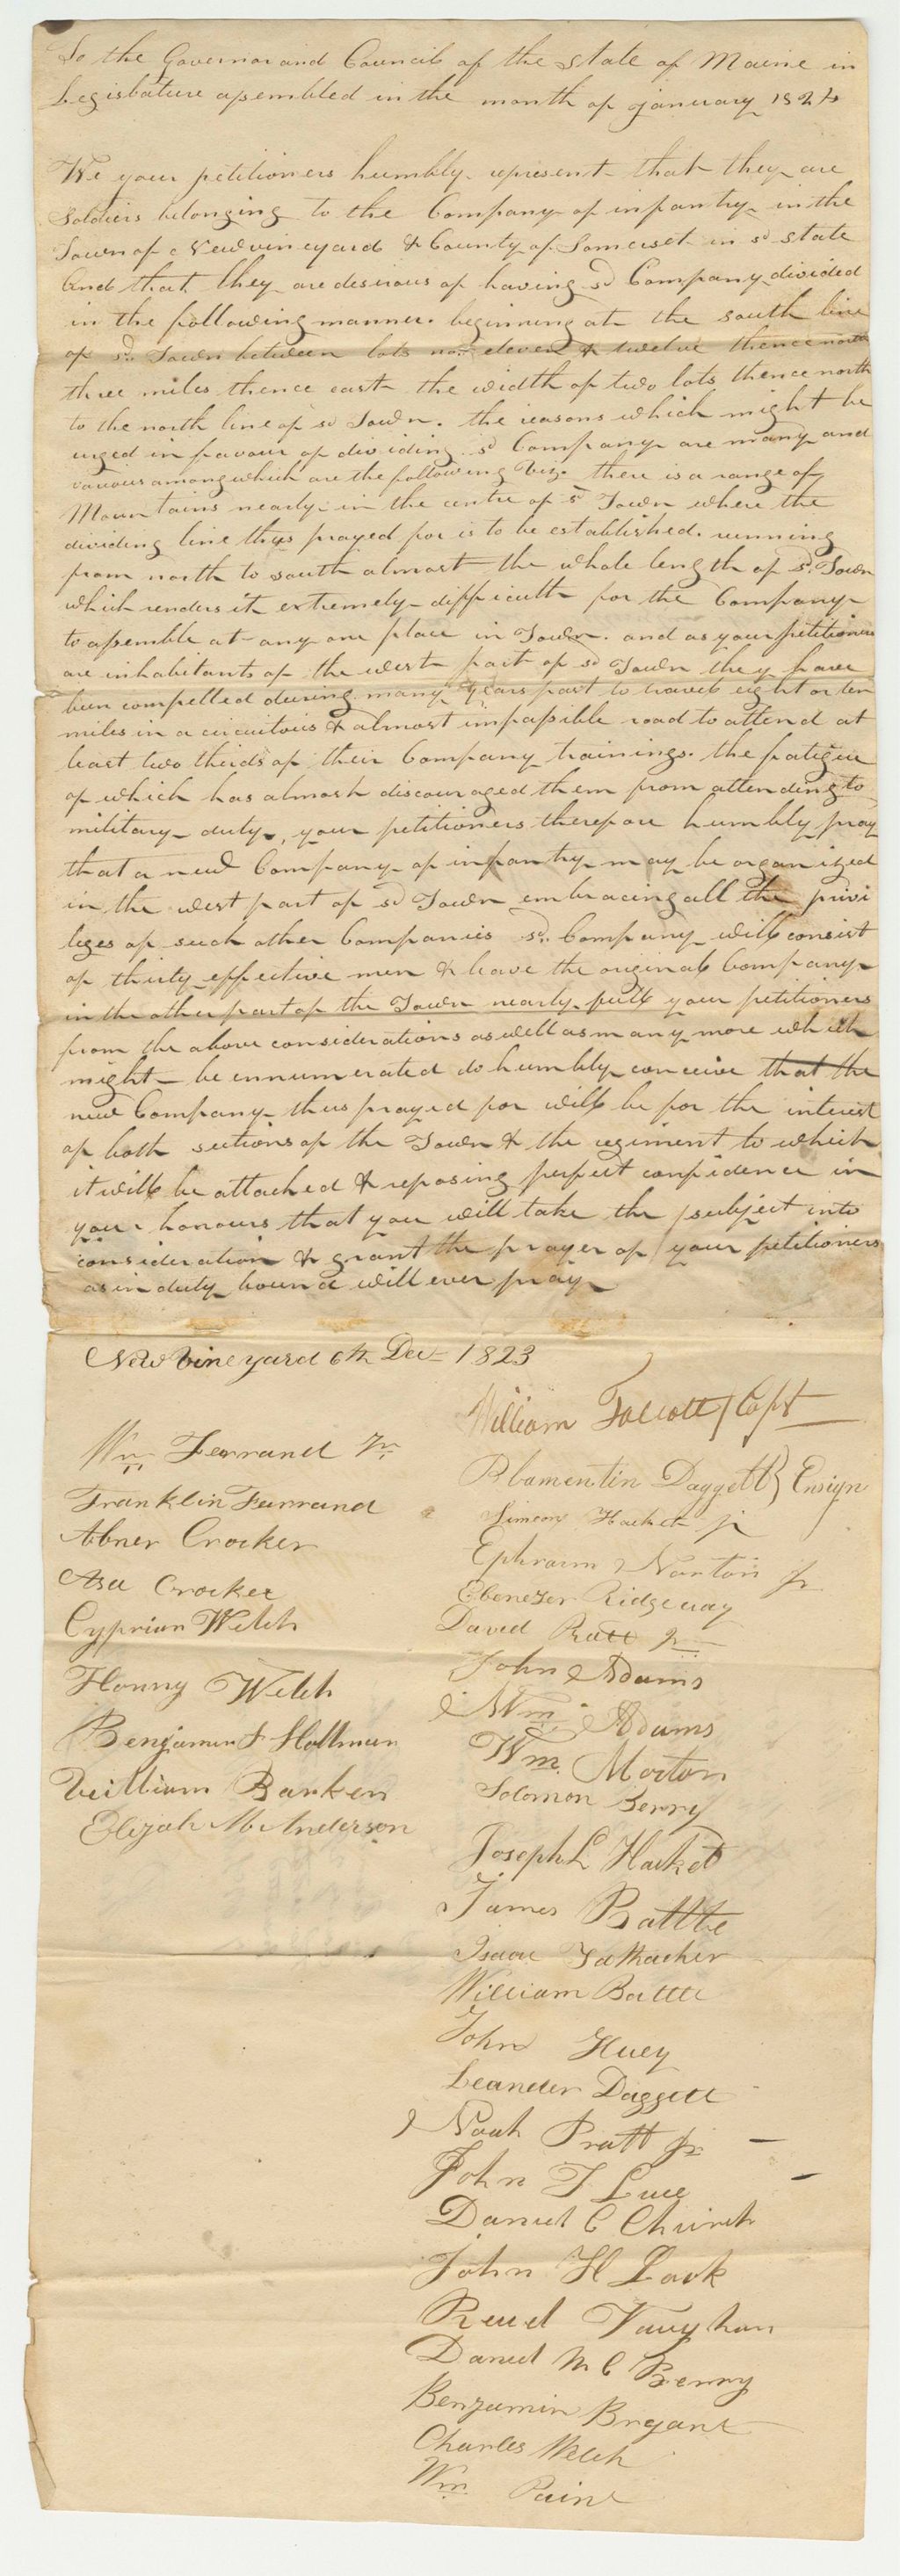 To the Governor and Council of the State of Maine in
Legislature assembled in the month of January 1824
We your petitioners humbly represent that they are
Soldiers belonging to the Company of infantry in the
Town of New vineyard & County of Somerset in sd state
And that they are desirous of having sd Company divided
in the following manner. beginning at the south line
of sd. Town between lots no. eleven & twelve thence north
three miles thence east the width of two lots thence north
to the north line of sd Town. the reasons which might be
urged in favour of dividing sd Company are many and
various among which are the following Viz. there is a range of
Mountains nearly in the centre of sd Town where the
dividing line thus prayed for is to be established. running
from north to south almost the whole length of sd. Town
which renders it extremely difficult for the Company
to assemble at any one place in Town. and as your petitioners
are inhabitants of the west part of sd Town they have
been compelled during many years past to travel eight or ten
miles in a circuitous & almost impassible road to attend at
least two thirds of their Company trainings. the fatigue
of which has almost discouraged them from attending to
military duty, your petitioners therefore humbly pray
that a new Company of infantry may be organized
in the west part of sd Town embracing all the privi
liges of such other Companies sd. Company will consist
of thirty effective men & leave the original Company
in the other part of the Town nearly full your petitioners
from the above considerations as well as many more which
might be ennumerated do humbly conceive that the
new Company thus prayed for will be for the interest
of both sections of the Town & the regiment to which
it will be attached & reposing perfect confidence in
your honours that you will take the subject into
consideration & grant the prayer of your petitioners
as in duty bound will ever pray
New Vineyard 6th Dec 1823
William Talcott Capt
Wm Farrand Jr
Blamentin Daggett } Ensign
Franklin Farrand
Simeon Hacket jr
Abner Crocker
Ephraim Norton Jr
Asa Crocker
Ebenezer Ridgeway
Cyprian Welch
David Pratt Jr
John Adams
Honny Welch
Wm Adams
Benjamin F Holtman
Wm. Morton
William Barker
Solomon Berry
Elijah M Anderson
Joseph L Hacket
James Battle
Isaac
William Battle
John Huey
Leander Daggett
Noah Pratt Jr
John T Luce
Daniel C Church
John H Look
Reuel Vaughan
Daniel M C Berry
Benjamin Bryant
Charles Welch
Wm Paine